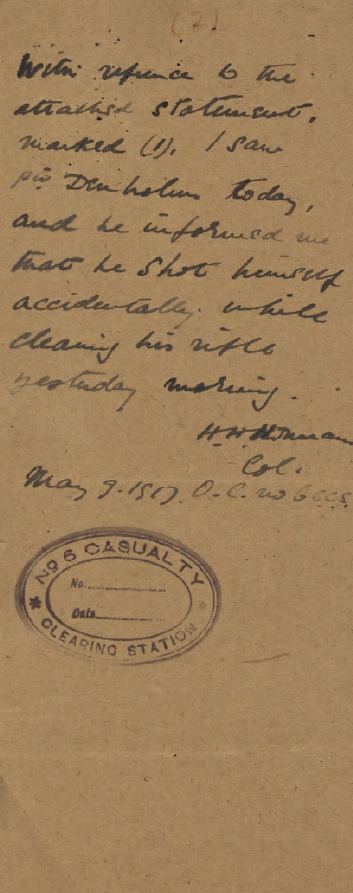 (2)
With refrence to the
attached statement,
marked (1), I saw
pte Denholm today,
and he informed me
that he shot himself
accidentally while
cleaning his rifle
yesterday morning.
H H Norman
Col.
May 9. 1917. O.C. no 6 CCS.
No 6 CASUALTY
No.
Date
CLEARING STATION